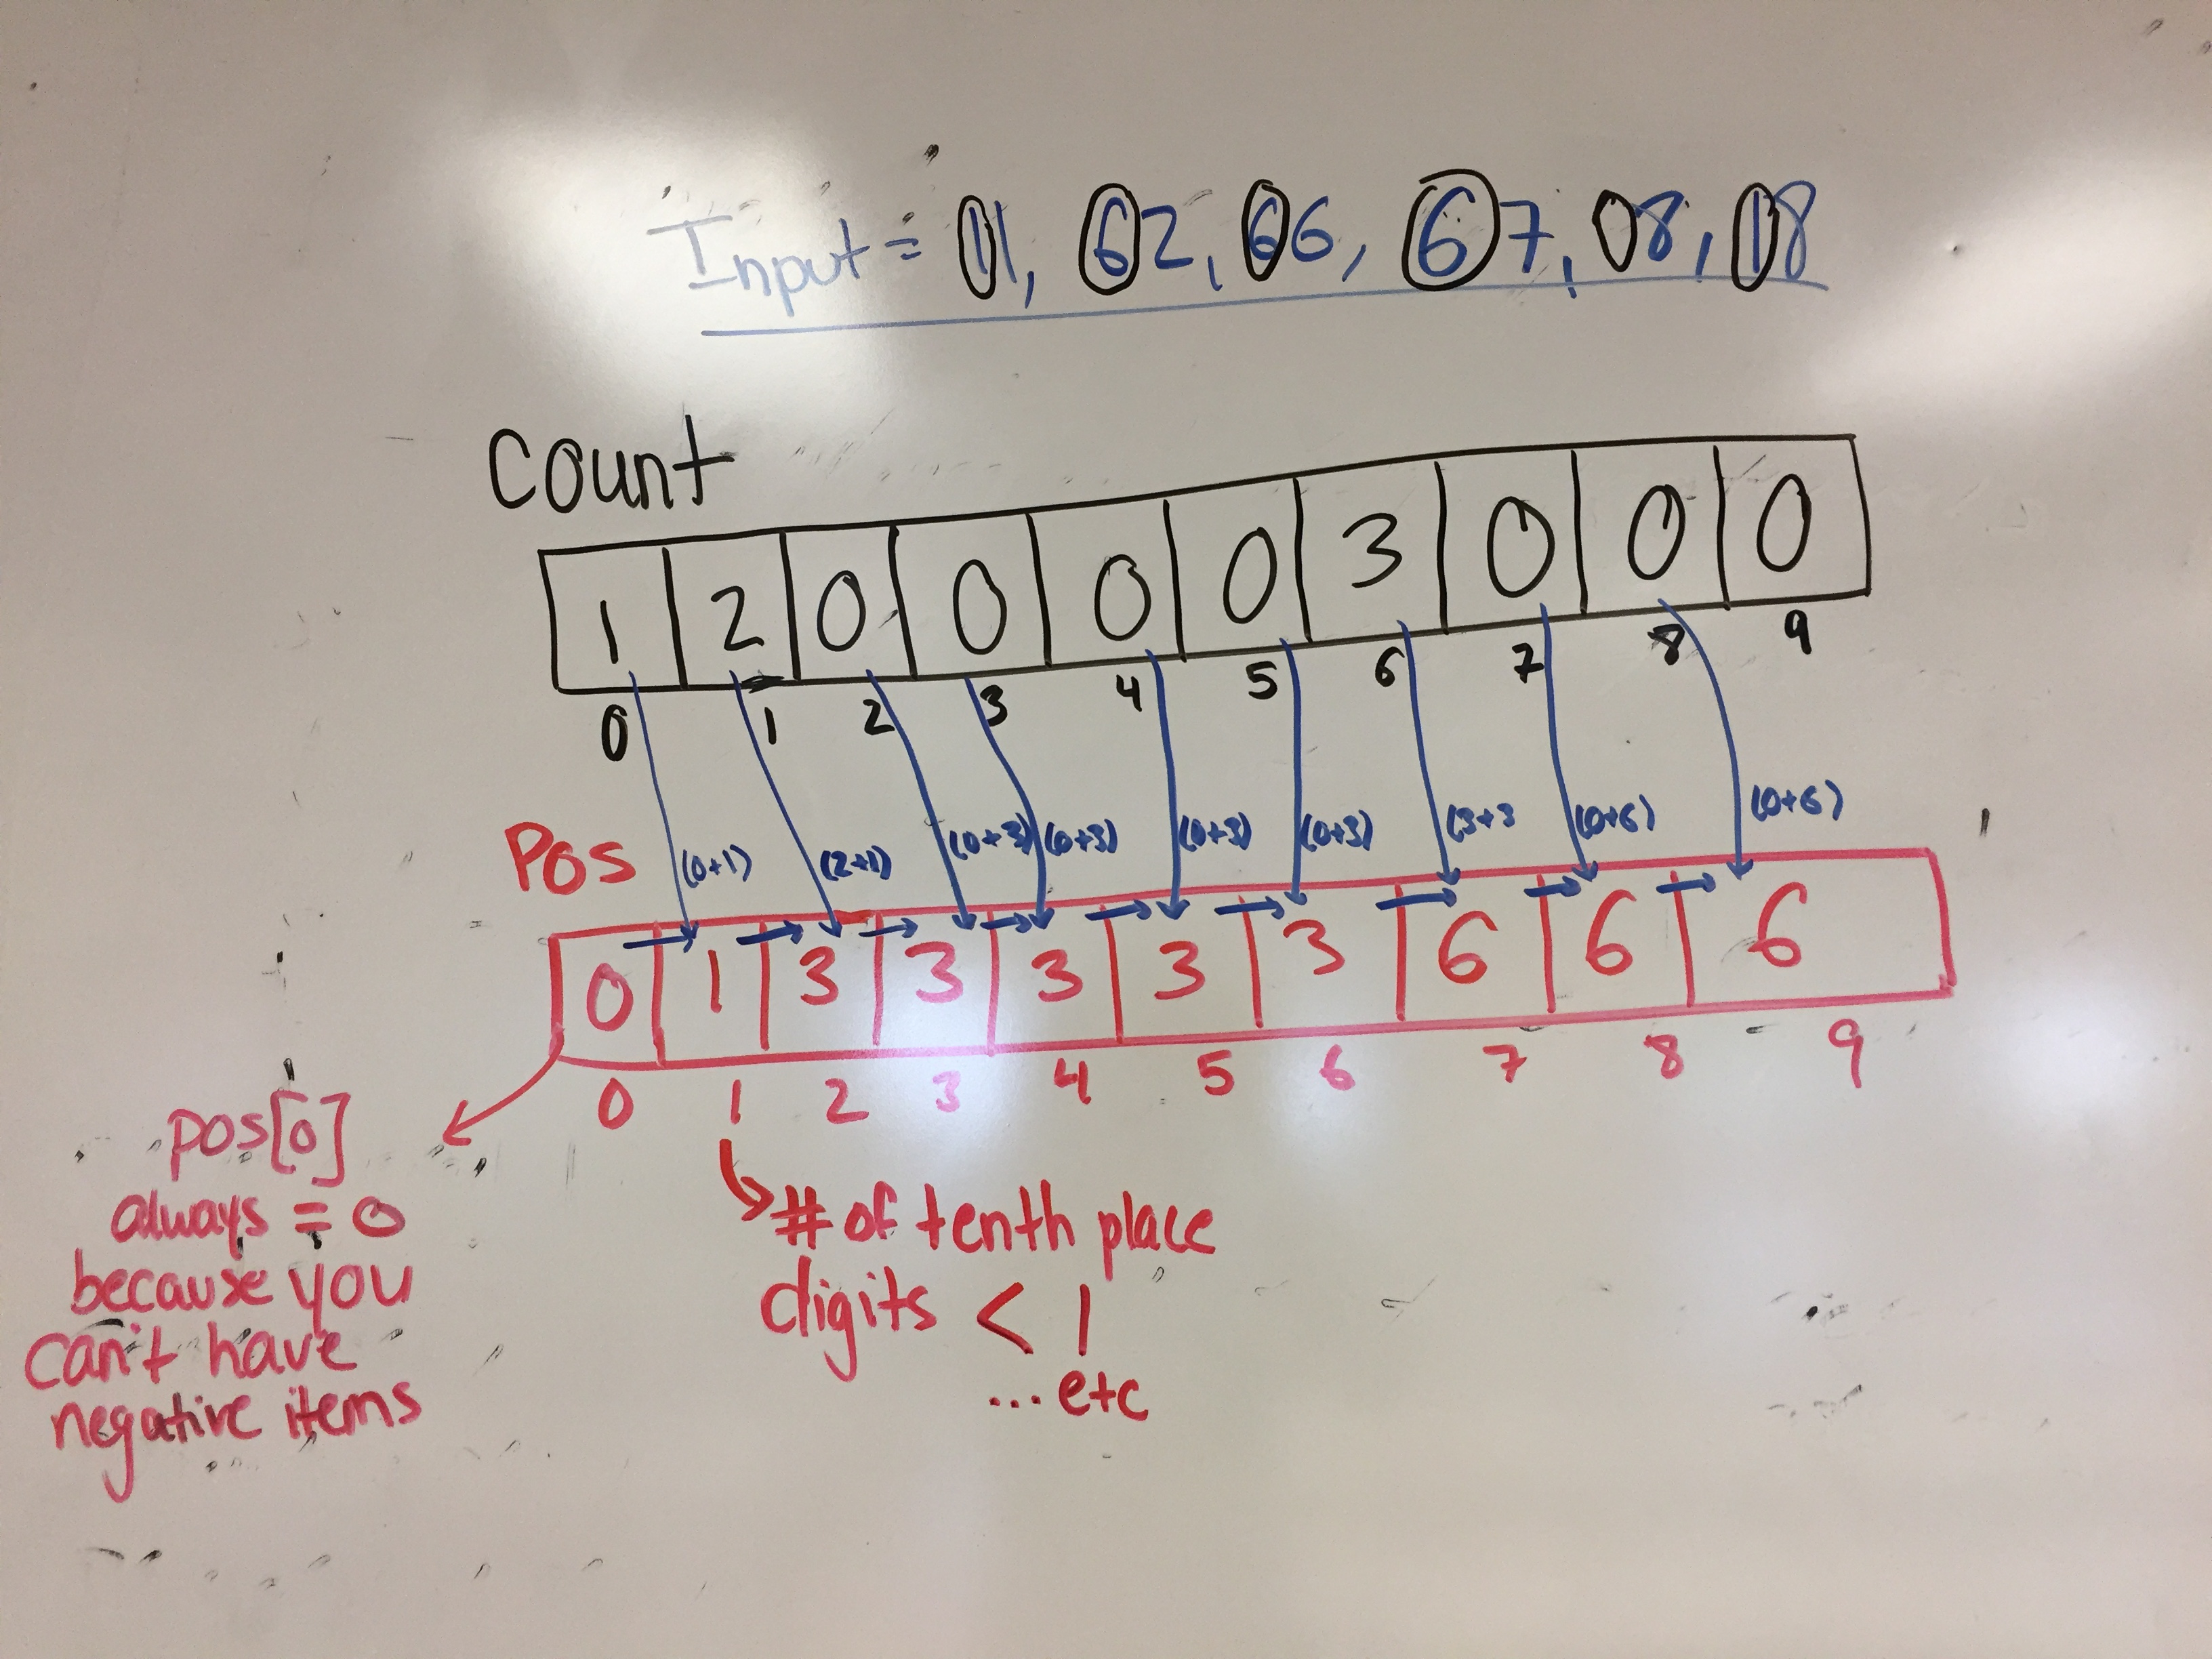 Input = 11, 62, 66, 67, 08, 18
Count
1 2 0 0 0 0 3 0 0 0
0 1 2 3 4 5 6 7 8 9
Pos
(0+1) (2+1) (0+3) (0+3) (0+3) (0+3) (3+3 (0+6) (0+6)
0 1 3 3 3 3 3 6 6 6
0 1 2 3 4 5 6 7 8 9
pos[0]
always = 0
because you
can't have
negative items
# of tenth place
digits < 1
... etc